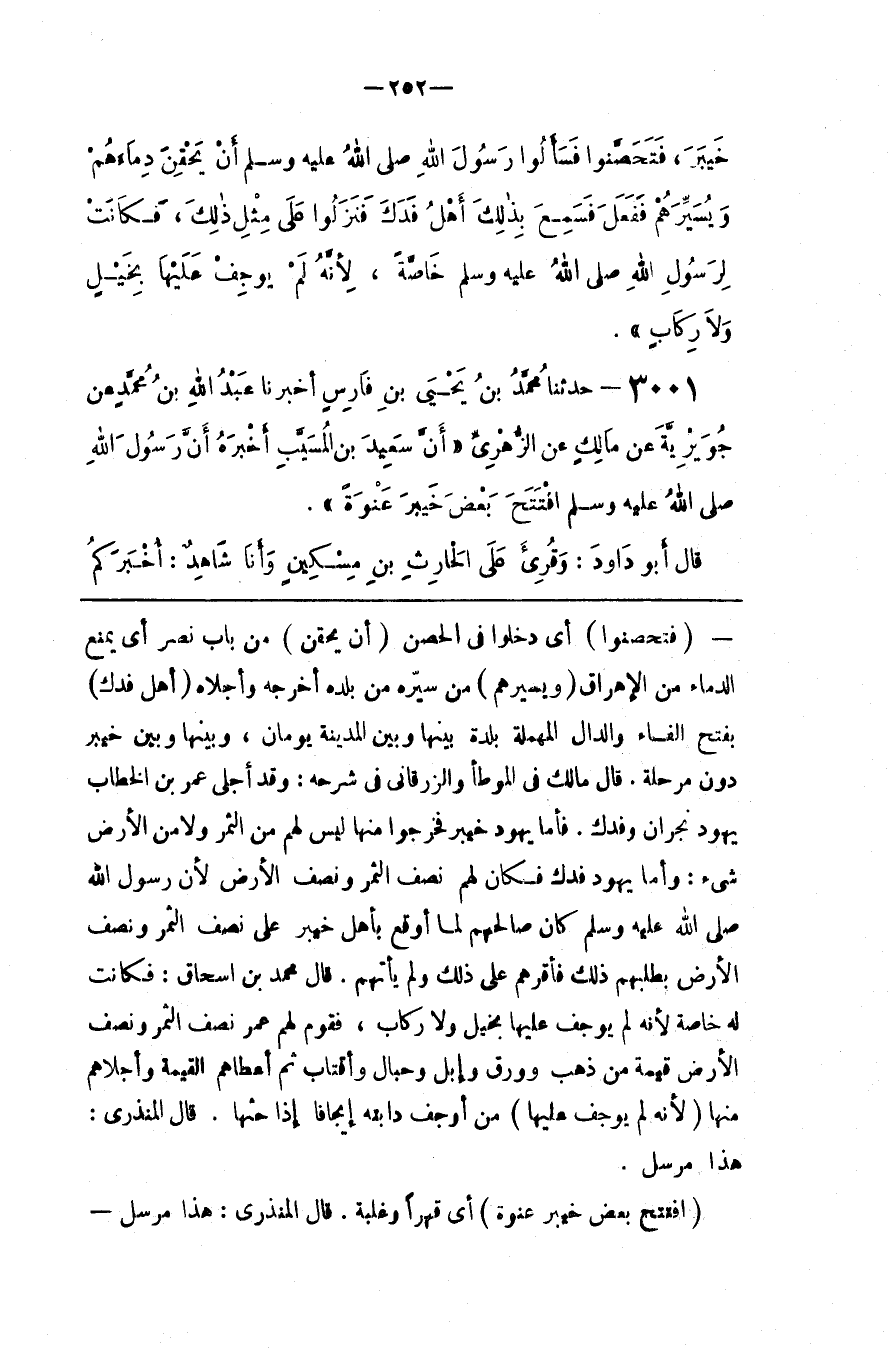 —٢٥٢—
خَيْبَرَ، فَتَحَصَّنوا فَسَأَلُوا رَسُولَ اللهِ صلى اللهُ عليه وسلم أَنْ يَحْقِنَ دِمَاءَهُمْ
وَيُسَيِّرَهُمْ فَفَعَلَ فَسَمِعَ بِذٰلِكَ أَهْلُ فَدَكَ فَنَزَلُوا عَلَى مِثْلِ ذٰلِكَ، فَكَانَتْ
لِرَسُولِ اللهِ صلى اللهُ عليه وسلم خَاصَّةً ، لِأَنَّهُ لَمْ يوجِفْ عَلَيْهَا بِخَيْلٍ
وَلاَ رِكَابٍ » .
٣٠٠١ — حدثنا مُحمَّدُ بنُ يَحْيَى بنِ فَارِسٍ أخبرنا عَبْدُ اللهِ بنُ مُحمَّدٍ عن
جُوَيْرِيَّةَ عن مَالِكٍ عن الزُّهْرِىِّ « أَنَّ سَعِيدَ بن المُسَيَّبِ أَخْبَرَهُ أَنَّ رَسُولَ اللهِ
صلى اللهُ عليه وسلم افْتَتَحَ بَعْضَ خَيبرَ عَنْوَةً » .
قال أَبو دَاودَ : وَقُرِىَٔ عَلَى الْحَارِثِ بنِ مِسْكِينٍ وَأَنَا شَاهِدٌ : أَخْبَرَكمُ
— ( فتحصنوا ) أى دخلوا فى الحصن ( أن يحقن ) من باب نصر أى يمنع
الدماء من الإهراق ( ويسيرهم ) من سيّره من بلده أخرجه وأجلاه ( أهل فدك )
بفتح الفاء والدال المهملة بلدة بينها وبين المدينة يومان ، وبينها وبين خيبر
دون مرحلة . قال مالك فى الموطأ والزرقانى فى شرحه : وقد أجلى عمر بن الخطاب
يهود نجران وفدك . فأما يهود خيبر فخرجوا منها ليس لهم من الثمر ولا من الأرض
شىء : وأما يهود فدك فكان لهم نصف الثمر ونصف الأرض لأن رسول الله
صلى الله عليه وسلم كان صالحهم لما أوقع بأهل خيبر على نصف الثمر ونصف
الأرض بطلبهم ذلك فأقرهم على ذلك ولم يأتهم . قال محمد بن اسحاق : فكانت
له خاصة لأنه لم يوجف عليها بخيل ولا ركاب ، فقوم لهم عمر نصف الثمر ونصف
الأرض قيمة من ذهب وورق وإبل وحبال وأقتاب ثم أعطاهم القيمة وأجلاهم
منها ( لأنه لم يوجف عليها ) من أوجف دابته إيجافا إذا حثها . قال المنذرى :
هذا مرسل .
( افتتح بعض خيبر عنوة ) أى قهراً وغلبة . قال المنذرى : هذا مرسل —